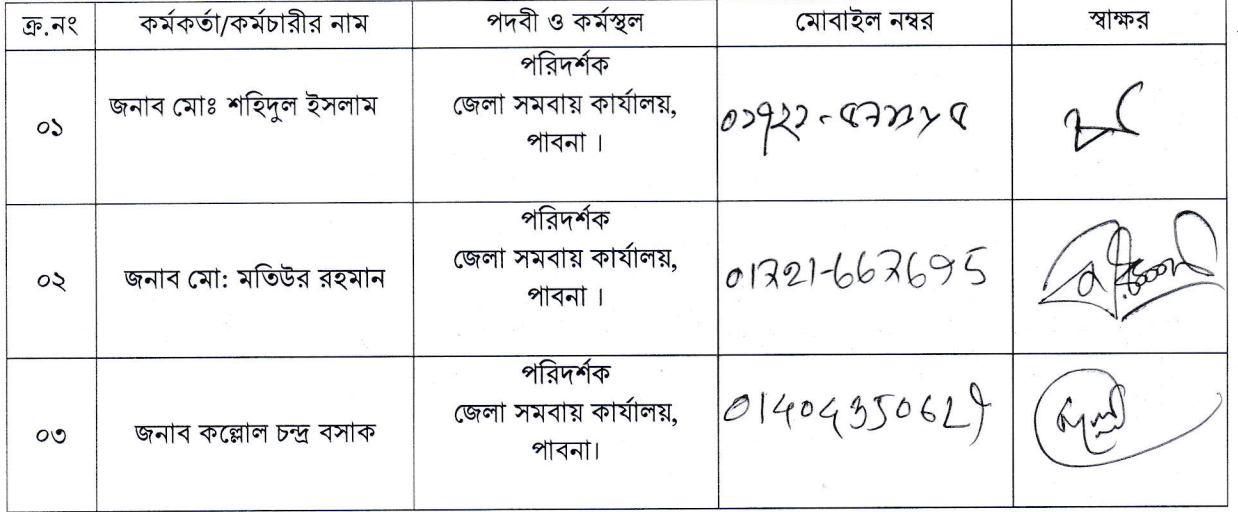 ক্র.নং কর্মকর্তা/কর্মচারীর নাম পদবী ও কর্মস্থল মোবাইল নম্বর স্বাক্ষর
০১ জনাব মোঃ শহিদুল ইসলাম
পরিদর্শক
জেলা সমবায় কার্যালয়,
পাবনা ।
০২ জনাব মো: মতিউর রহমান
পরিদর্শক
জেলা সমবায় কার্যালয়,
পাবনা ।
01721-667695
০৩ জনাব কল্লোল চন্দ্র বসাক
পরিদর্শক
জেলা সমবায় কার্যালয়,
পাবনা।